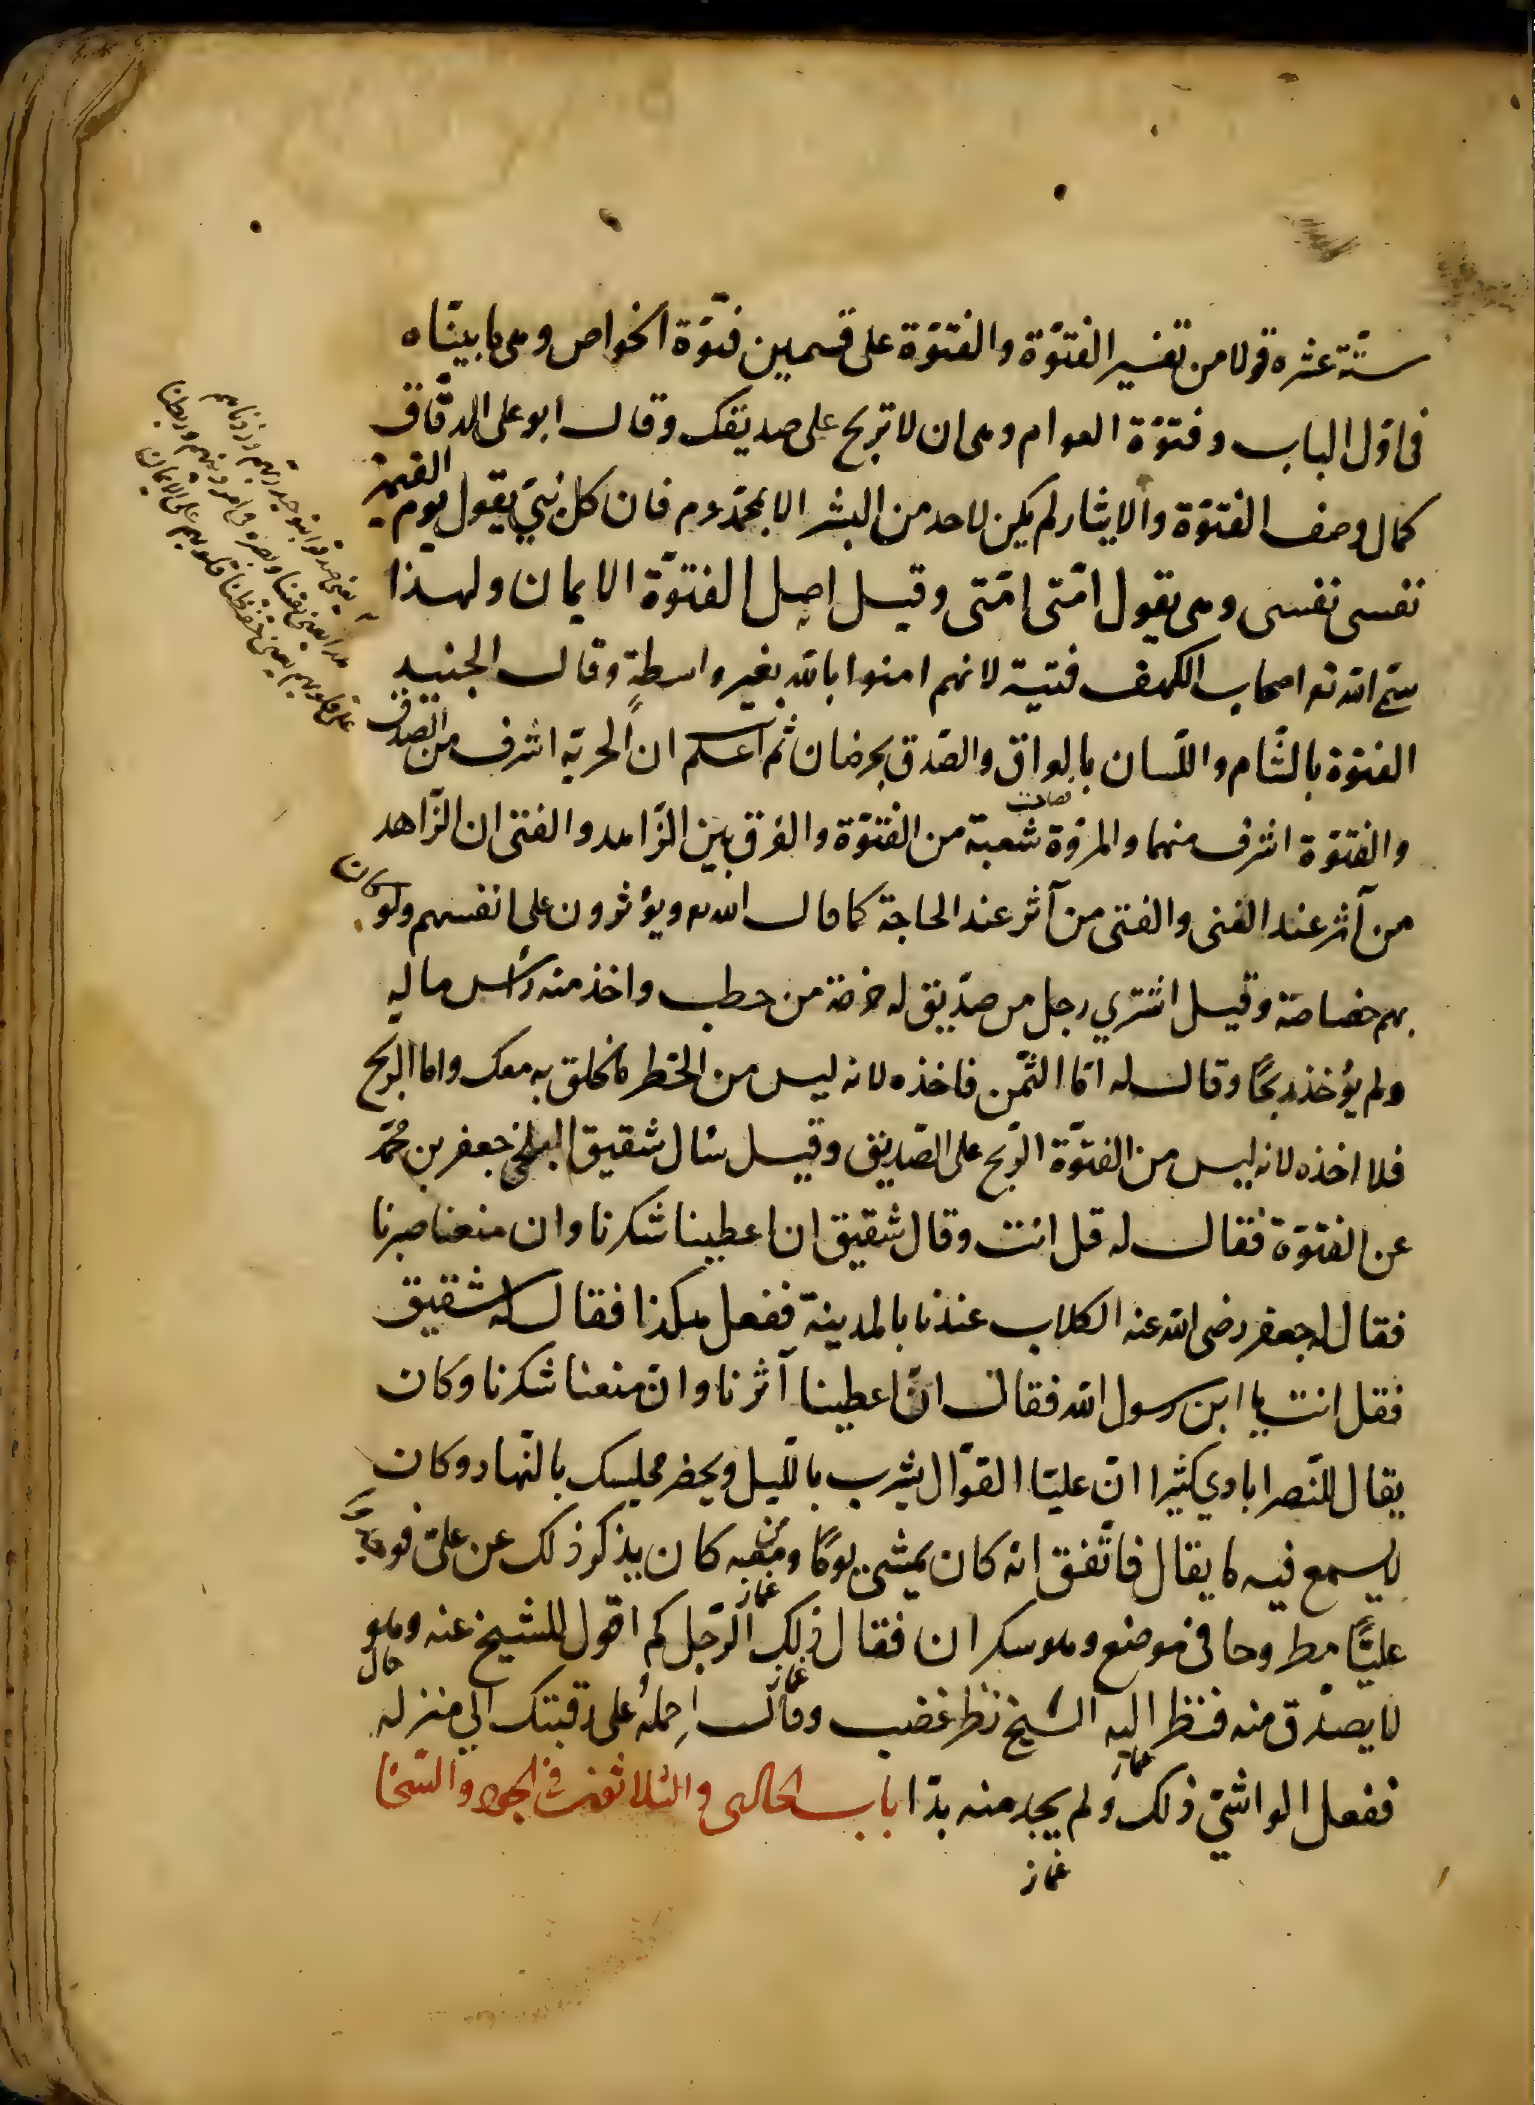 ستّة عشره قولا من تفسير الفتوّة والفتوّة على قسمين فتوّة الخواص وهى ما بيّناه
فى اوّل الباب وفتوّة العوام وهى ان لا تربح على صديقك وقال ابو على الدقّاق
كمال وصف الفتوّة والايثار لم يكن لاحد من البشر الا لمحمّد عم فان كل نبىّ يقول يوم القيمة
نفسى نفسى وهى يقول امّتى امّتى وقيل اصل الفتوّة الايمان ولهذا
سمّى الله تعه اصحاب الكهف فتية لانهم امنوا بالله بغير واسطةٍ وقال الجنيد
الفتوّة بالشّام واللّسان بالعراق والصّدق بخراسان ثم اعلم ان الحريّة اشرف من الصدق
والفتوّة اشرف منهما والمروّة شعبة من الفتوّة والفرق بين الزّاهد والفتى ان الزّاهد
من آثر عند الغنى والفتى من آثر عند الحاجة كما قال الله تعه ويؤثرون على انفسهم ولو كان
بهم خصاصة وقيل اشترى رجل من صدّيق له حزمة من حطب واخذ منه رأس ماله
ولم يؤخذ ربحًا وقال له امّا الثّمن فاخذه لانه ليس من الخطر ما تخلق به معك واما الربح
فلا اخذه لانه ليس من الفتوّة الرّبح على الصّديق وقيل سأل شقيق البلخى جعفر بن محمّد
عن الفتوّة فقال له قل انت وقال شقيق ان اعطينا شكرنا وان منعنا صبرنا
فقال جعفر رضى الله عنه الكلاب عندنا بالمدينة تفعل هكذا فقال له شقيق
فقل انت يا ابن رسول الله فقال ان اعطينا آثرنا وان منعنا شكرنا وكان
يقال للنّصراباذي كثيرا انّ عليّا القوّال يشرب بالّليل ويحضر مجلسك بالنّهار وكان
لا يسمع فيه ما يقال فاتّفق انه كان يمشى يومًا ومعه من كان يذكر ذلك عن علىّ فوجد
عليًّا مطروحا فى موضع وهو سكران فقال ذلك الرّجل كم اقول للشيخ عنه وهو
لا يصدّق منه فنظر اليه الشيخ نظر غضب وقال احمله على رقبتك الى منزله
ففعل الواشىّ ذلك ولم يجد منه بدّا باب الحادى والثلاثون فى الجود والسّخا
غماز